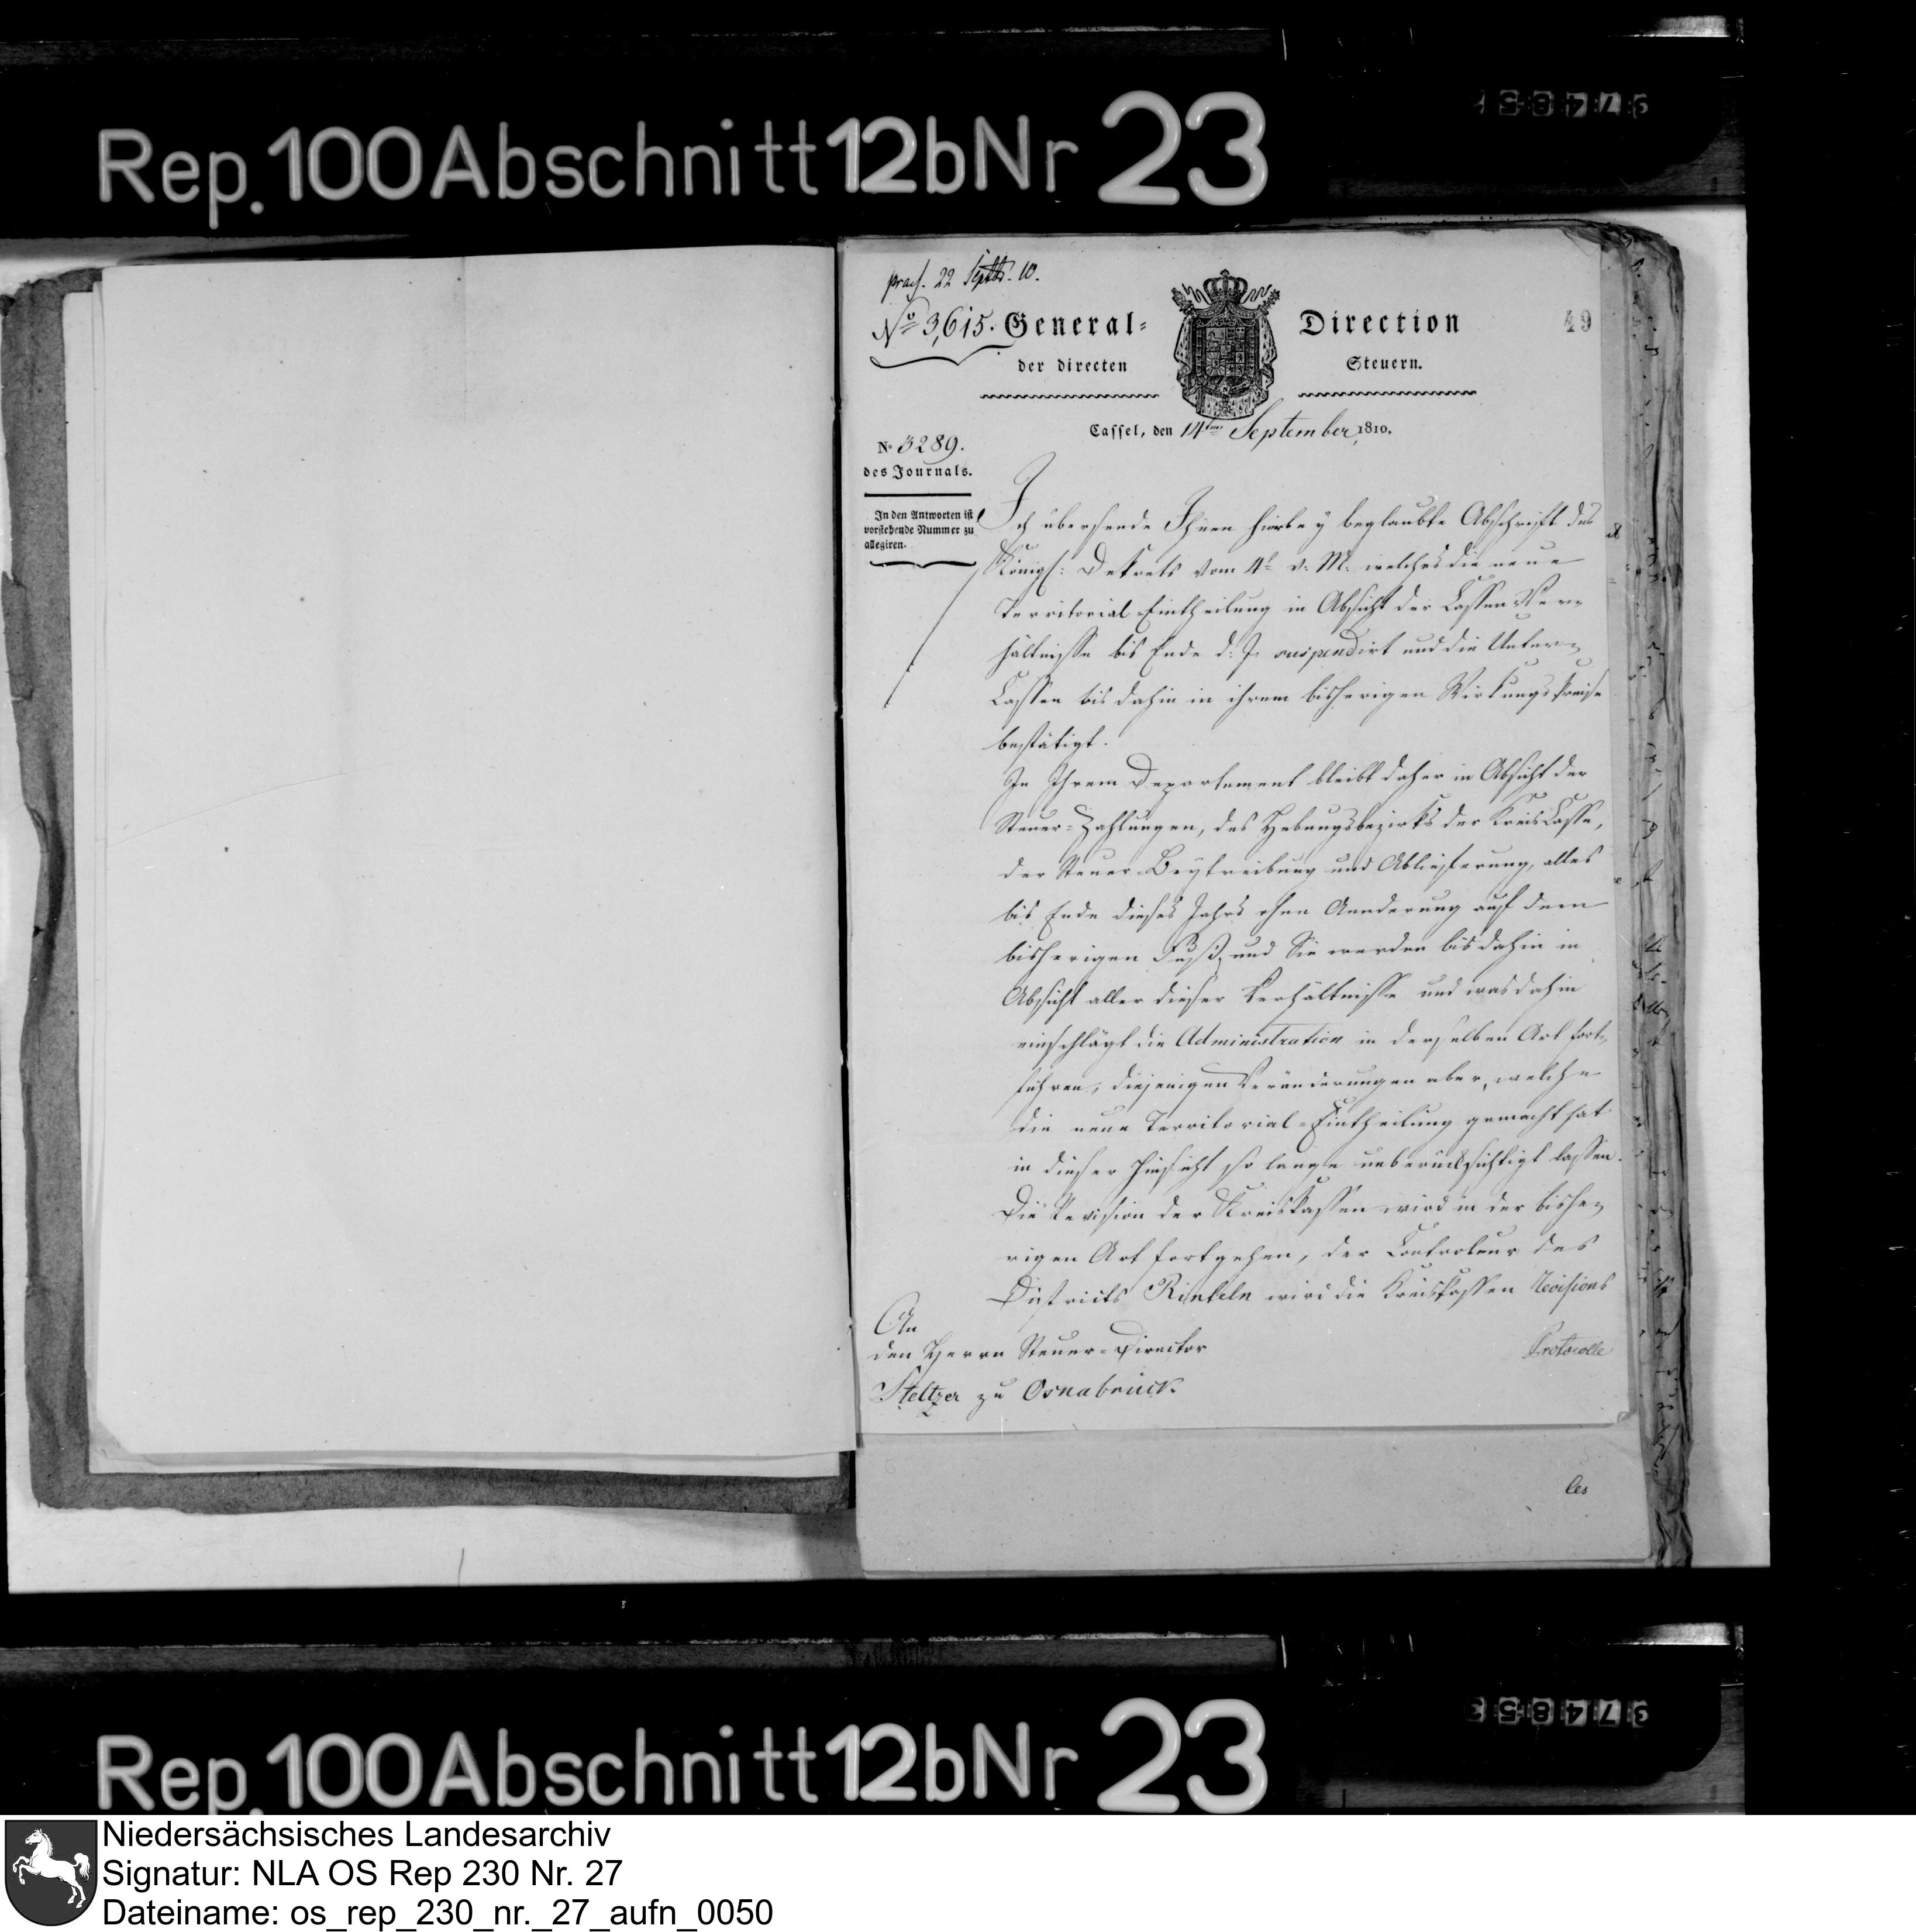 Rep. 100 Abschnitt 12b Nr 23
praes. 22 Septbr. 10.
No 3,615. General- Direction
49
der directen Steuern.
Cassel, den 14ten September 1810.
No 3289.
des Journals.
In den Antworten ist
vorstehende Nummer zu
allegiren.
Ich übersende Ihnen hierbey beglaubte Abschrift des
Königl: Dekrets vom 4t v. M. welches die neue
Territorial-Eintheilung in Absicht der Cassen Ver-
hältnisse bis Ende d. J. suspendirt und die Unter-
Cassen bis dahin in ihrem bisherigen Wirkungskreise
bestätigt.
In Ihrem Departement bleibt daher in Absicht der
Steuer-Zahlungen, des Hebungsbezirks der KreisCasse,
der Steuer-Beytreibung und Ablieferung, alles
bis Ende dieses Jahrs ohne Aenderung auf dem
bisherigen Fuß, und Sie werden bis dahin in
Absicht aller dieser Verhältnisse und was dahin
einschlägt die Administration in derselben Art fort-
führen, diejenigen Veränderungen aber, welche
die neue Territorial-Eintheilung gemacht hat
in dieser Hinsicht so lange unberücksichtigt lassen.
Die Revision der Kreiskassen wird in der bishe-
rigen Art fortgehen, der Controleur des
Districts Rinteln wird die Kreiskassen Revisions
Protocolle
An
den Herrn Steuer-Director
Steltzer zu Osnabrück
les
Rep. 100 Abschnitt 12b Nr 23
Niedersächsisches Landesarchiv
Signatur: NLA OS Rep 230 Nr. 27
Dateiname: os_rep_230_nr._27_aufn_0050